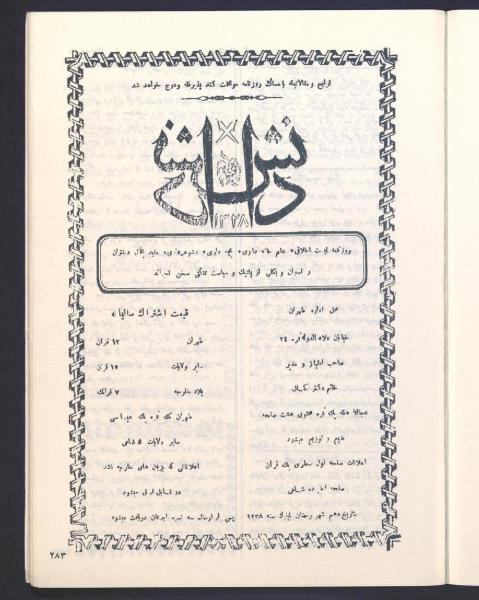 لوایح و مقالاتیکه با مسلک روزنامه موافقت کند پذیرفته ودرج خواهد شد
دانش
۱۳۲۸
روزنامه ایست اخلاقی، علم خانه داری، بچه داری، شوهرداری، مفید بحال دختران
و نسوان و بکلی از پلتیک و سیاست مملکتی سخن نمیراند
محل اداره طهران
خیابان علاءالدوله نمره ۲۴
صاحب امتیاز و مدیر
خانم دکتر کحال
عجالتا هفته یک نمره محتوی هشت صفحه
طبع و توزیع میشود
اعلانات صفحه اول سطری یک قران
صفحه اخر ده شاهی
بتاریخ دهم شهر رمضان المبارک سنه ۱۳۲۸
قیمت اشتراک سالیانه
طهران ۱۲ قران
سایر ولایات ۱۵ قران
بلاد خارجه ۷ فرانک
طهران تک نمره یک عباسی
سایر ولایات ۵ شاهی
اعلاناتی که بزبان های خارجه باشد
دو مقابل فوق میشود
پس از ارسال سه نمره ابونمان دریافت میشود
۲۸۳